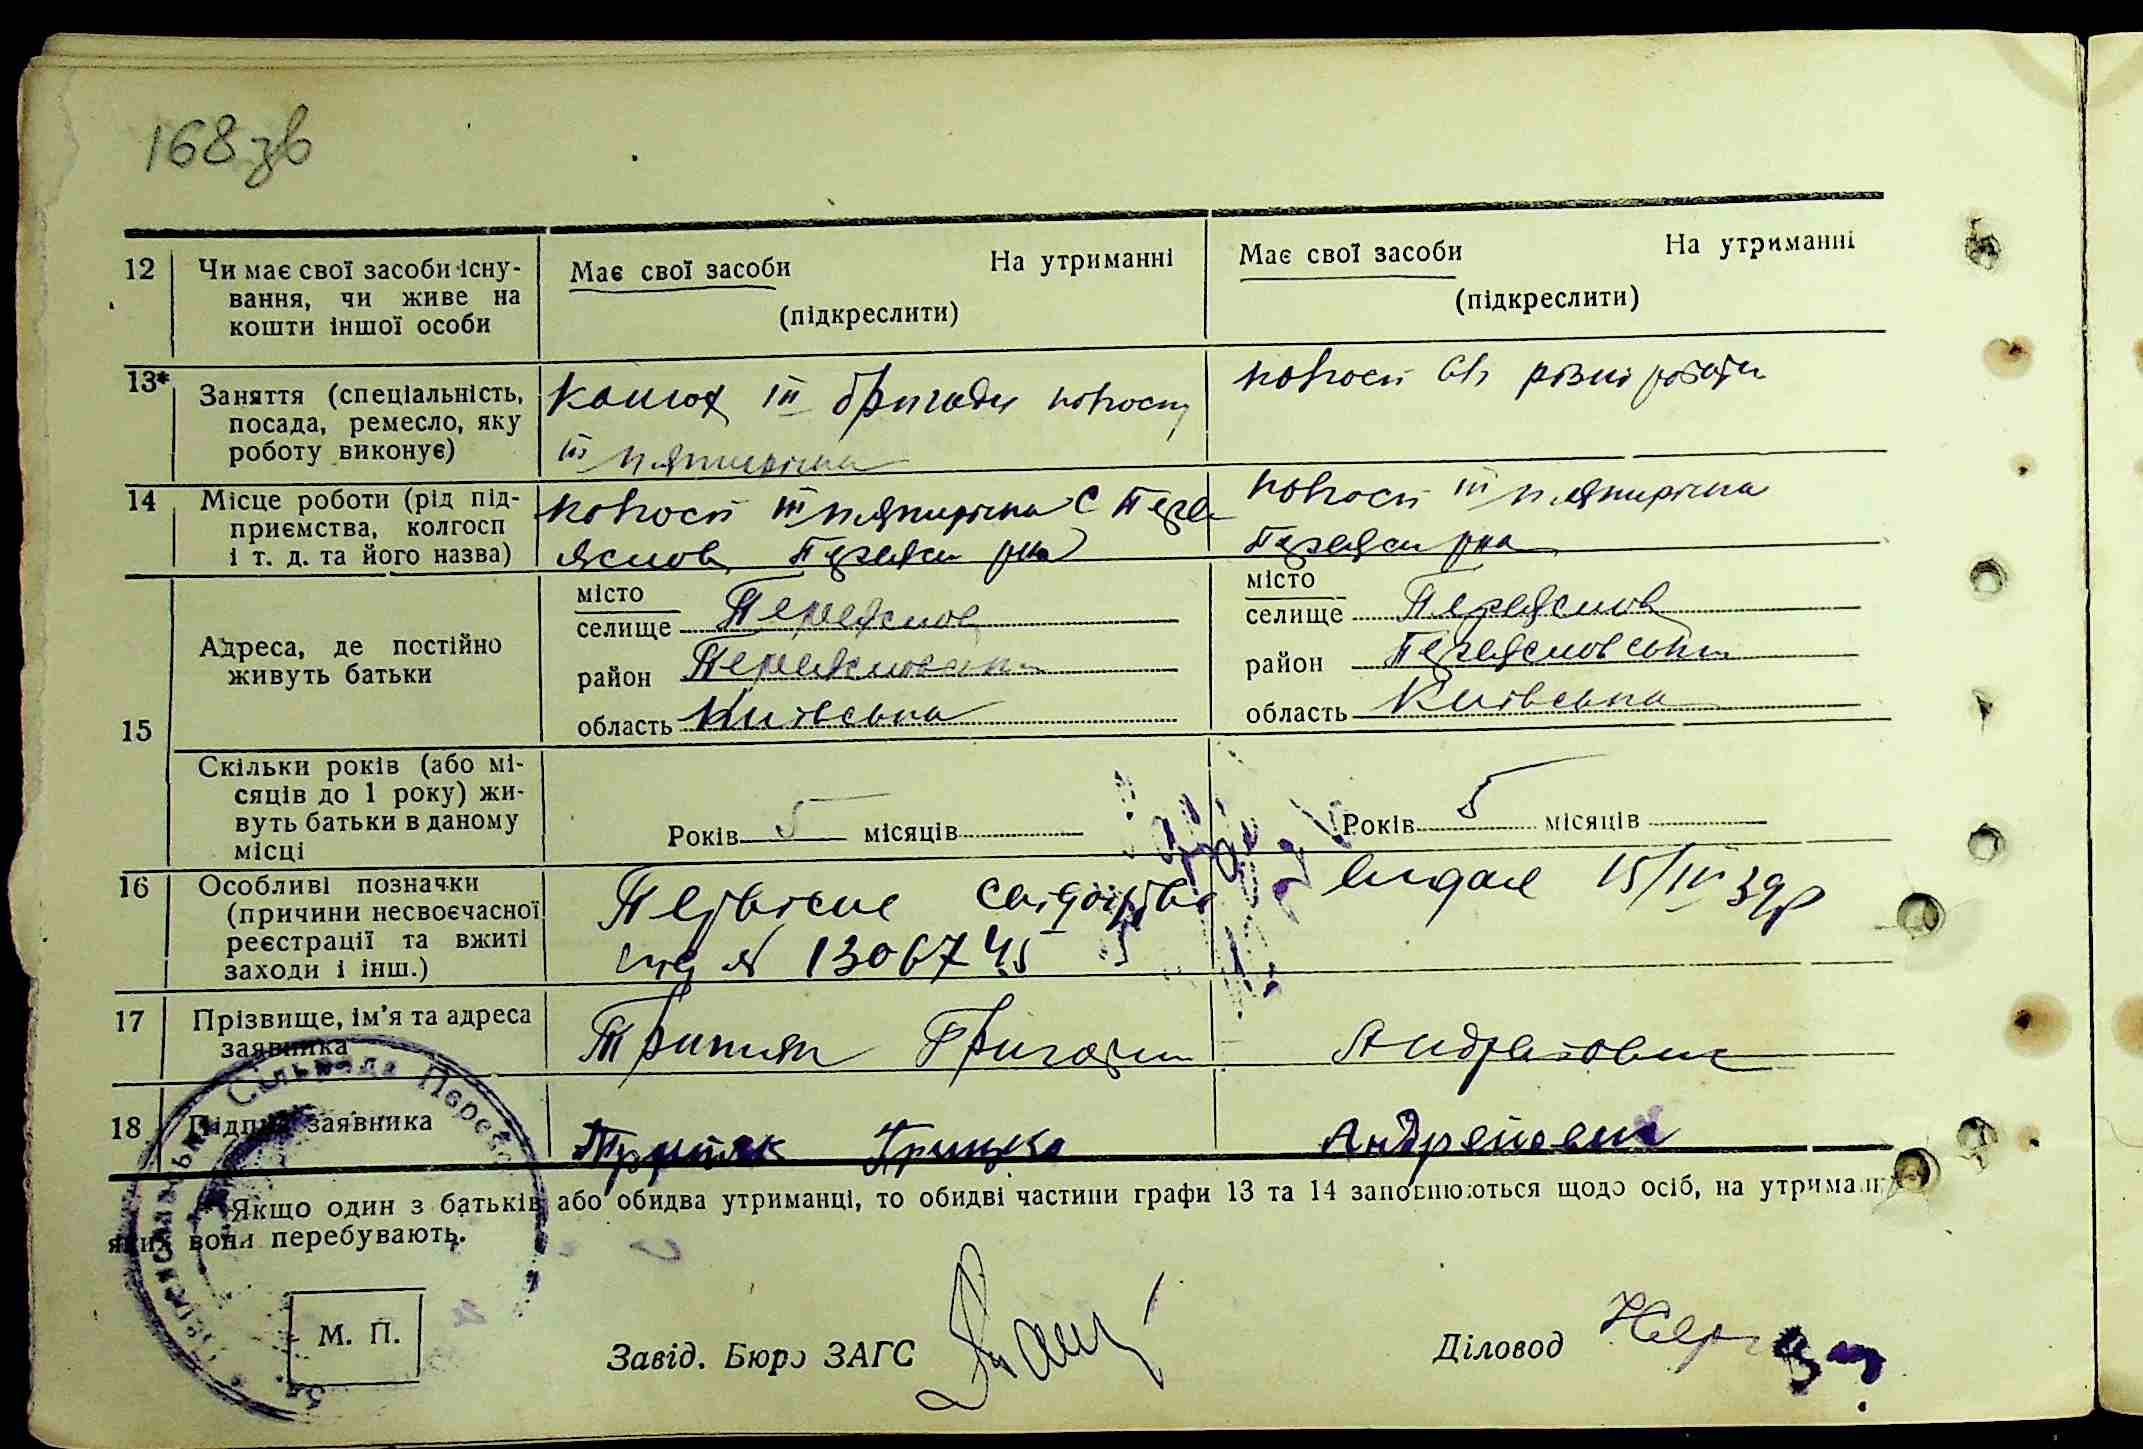 168 зв
12 Чи має свої засоби існу-
вання, чи живе на
кошти іншої особи
Має свої засоби На утриманні
(підкреслити)
Має свої засоби На утриманні
(підкреслити)
13* Заняття (спеціальність,
посада, ремесло, яку
роботу виконує)
Конюх ІІІ бригади колгоспу
ІІІ пятирічка
колгосп різні роботи
14 Місце роботи (рід під-
приємства, колгосп
і т. д. та його назва)
колгосп ІІІ пятирічка С Пере
яслов Переясл рна
колгосп ІІІ пятирічка
Переясл рна
15 Адреса, де постійно
живуть батьки
місто
селище Переяслов
район
область Київська
місто
селище Переяслов
район Переясловськи
область Київська
Скільки років (або мі-
сяців до 1 року) жи-
вуть батьки в даному
місці
Років 5 місяців
Років 5 місяців
16 Особливі позначки
(причини несвоєчасної
реєстрації та вжиті
заходи і інш.)
Первісне свідоцтво видане 15/ІІІ 39р
№ 1306745
17 Прізвище, ім'я та адреса
заявника
Григорій Андрієвич
18 Підпис заявника
Грицько Андреевич
Якщо один з батьків або обидва утриманці, то обидві частини графи 13 та 14 заповнюються щодо осіб, на утриманні
яких вони перебувають.
М. П.
Завід. Бюро ЗАГС
Діловод
Сільрада